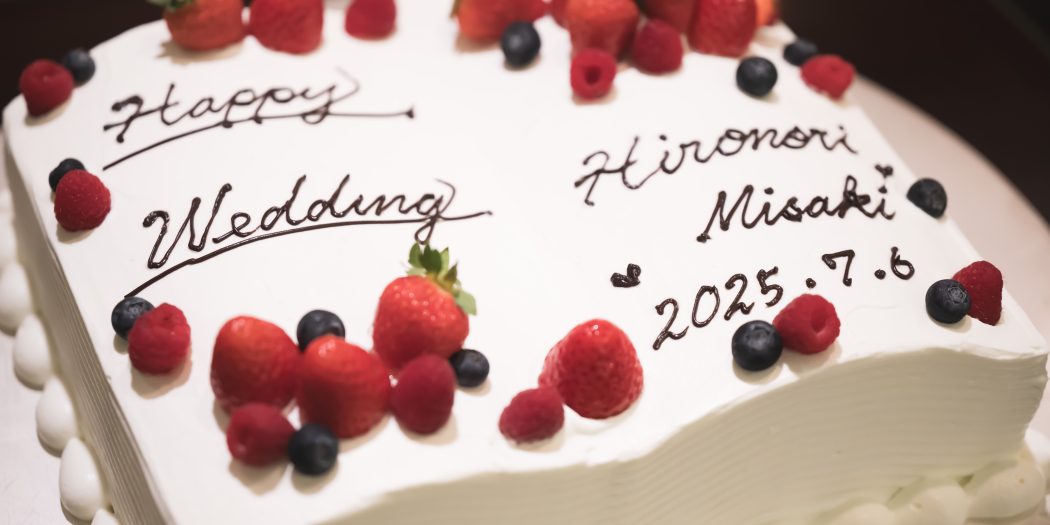 Happy
Wedding
Hironori
Misaki
2025.7.6